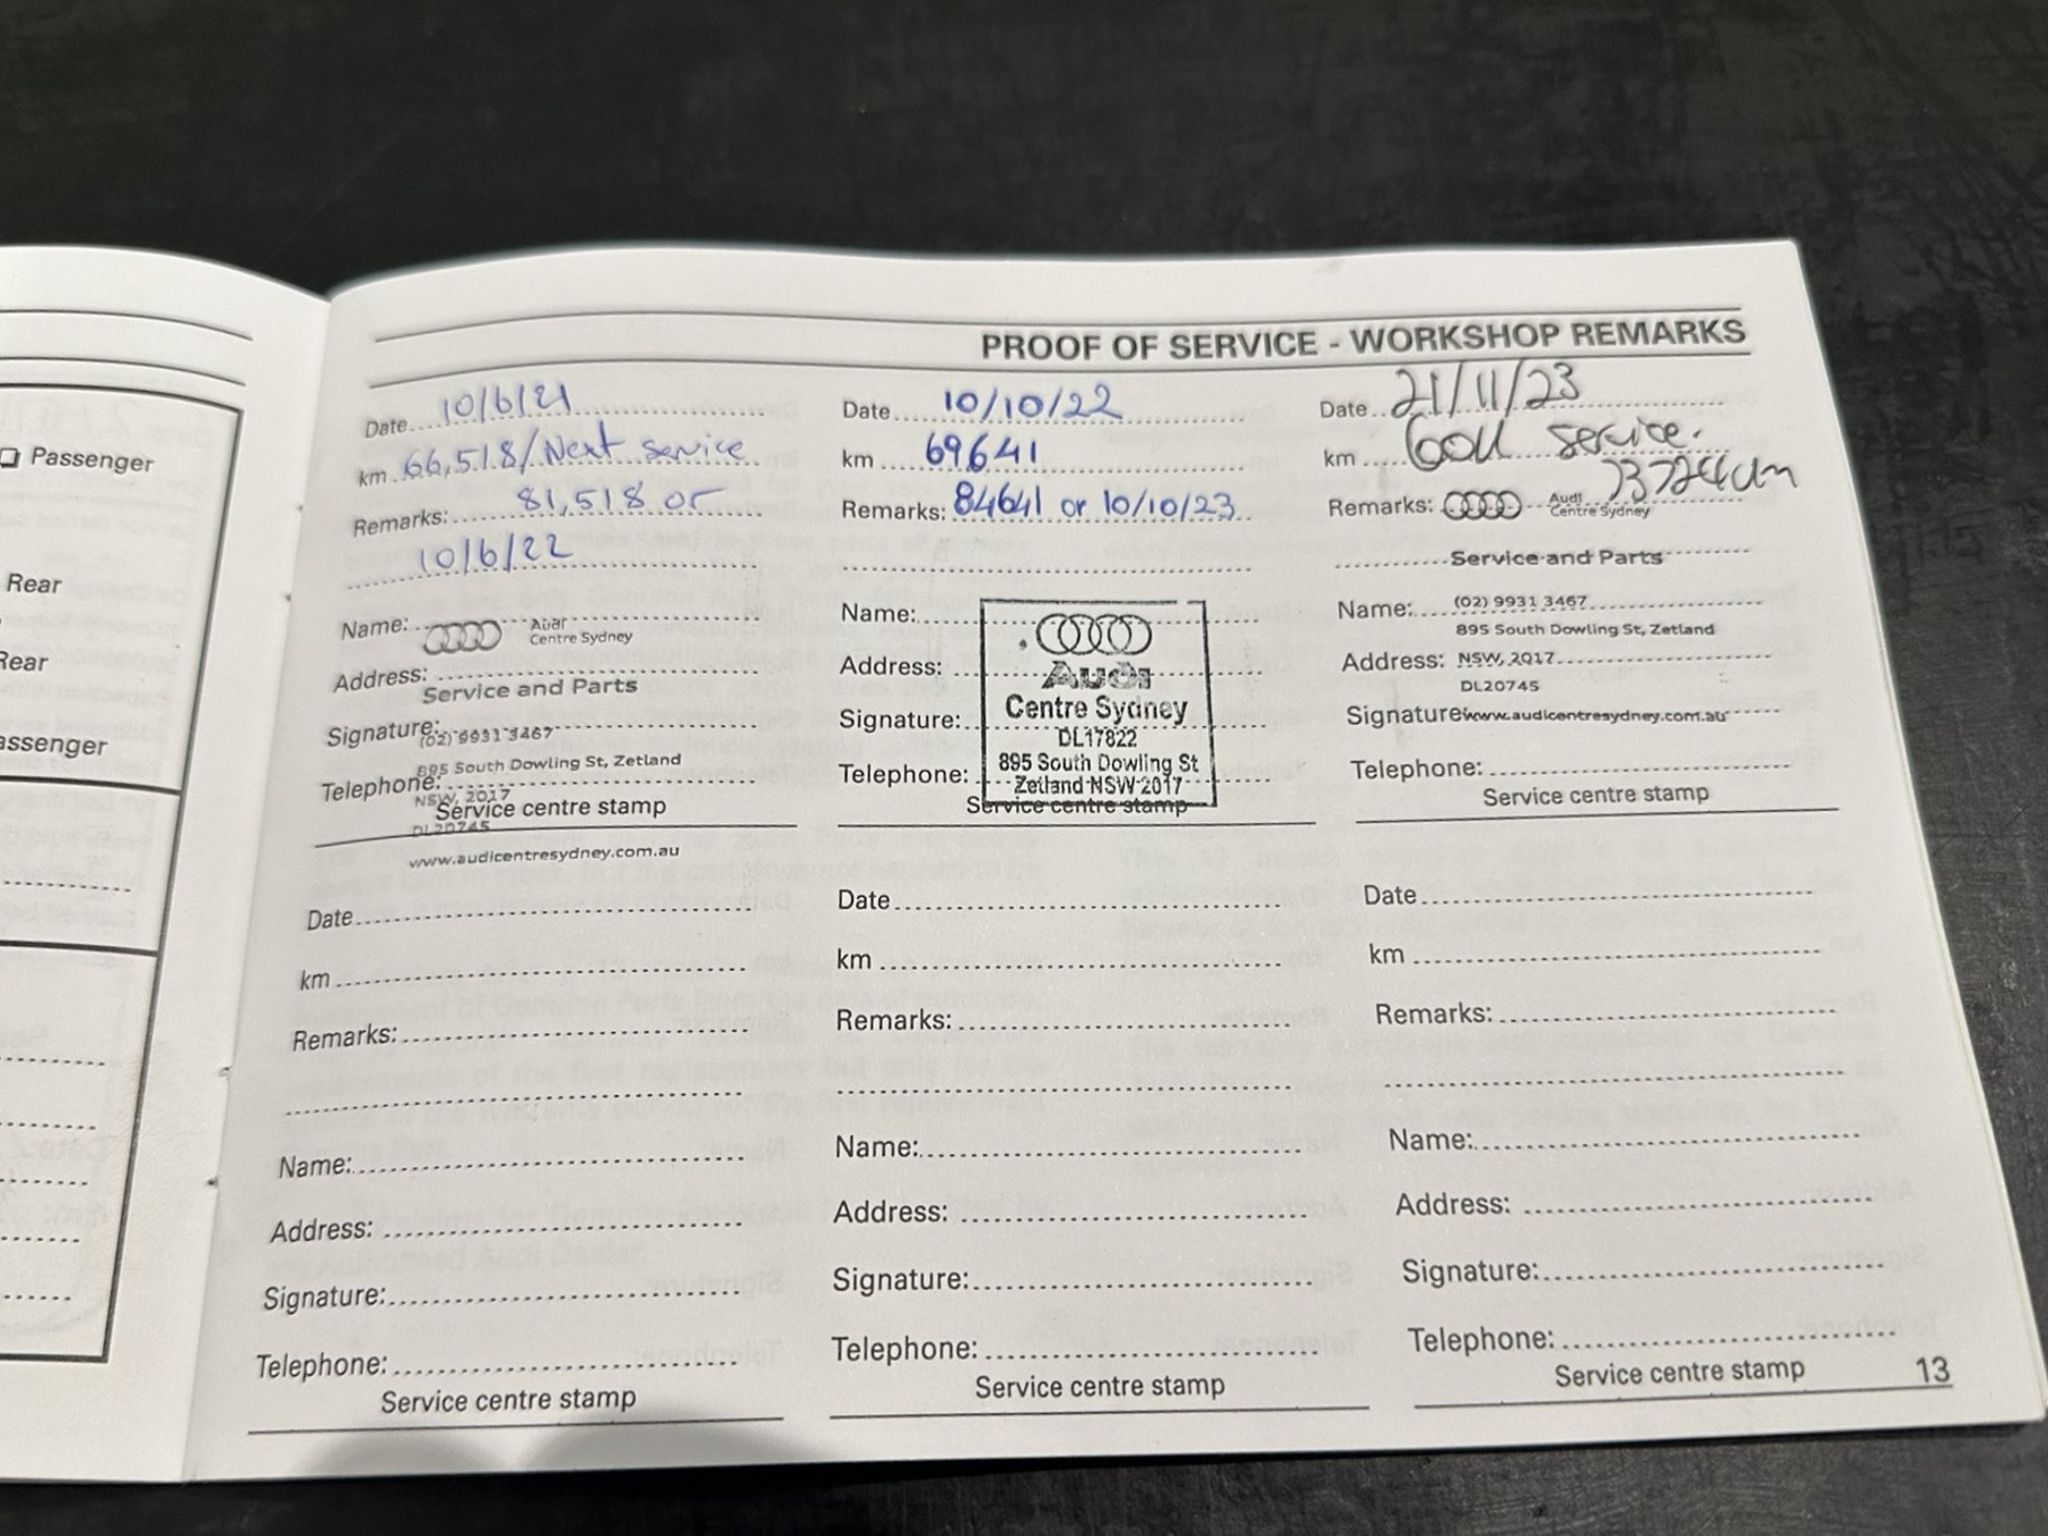 Passenger
Rear
Rear
assenger
PROOF OF SERVICE - WORKSHOP REMARKS
Date 10/6/21
km 66,518/Next service
Remarks: 81,518 or
10/6/22
Name: Audi
Centre Sydney
Address:
Service and Parts
Signature:
(02) 9931 3467
895 South Dowling St, Zetland
Telephone:
NSW, 2017
Service centre stamp
DL20745
www.audicentresydney.com.au
Date 10/10/22
km 69641
Remarks: 84641 or 10/10/23
Name:
Address:
Audi
Centre Sydney
Signature:
DL17822
895 South Dowling St
Telephone:
Zetland NSW 2017
Service centre stamp
Date 21/11/23
km 60k service.
Remarks: Audi
Centre Sydney
Service and Parts
Name: (02) 9931 3467
895 South Dowling St, Zetland
Address: NSW, 2017
DL20745
Signature: www.audicentresydney.com.au
Telephone:
Service centre stamp
Date
km
Remarks:
Name:
Address:
Signature:
Telephone:
Service centre stamp
Date
km
Remarks:
Name:
Address:
Signature:
Telephone:
Service centre stamp
Date
km
Remarks:
Name:
Address:
Signature:
Telephone:
Service centre stamp
13